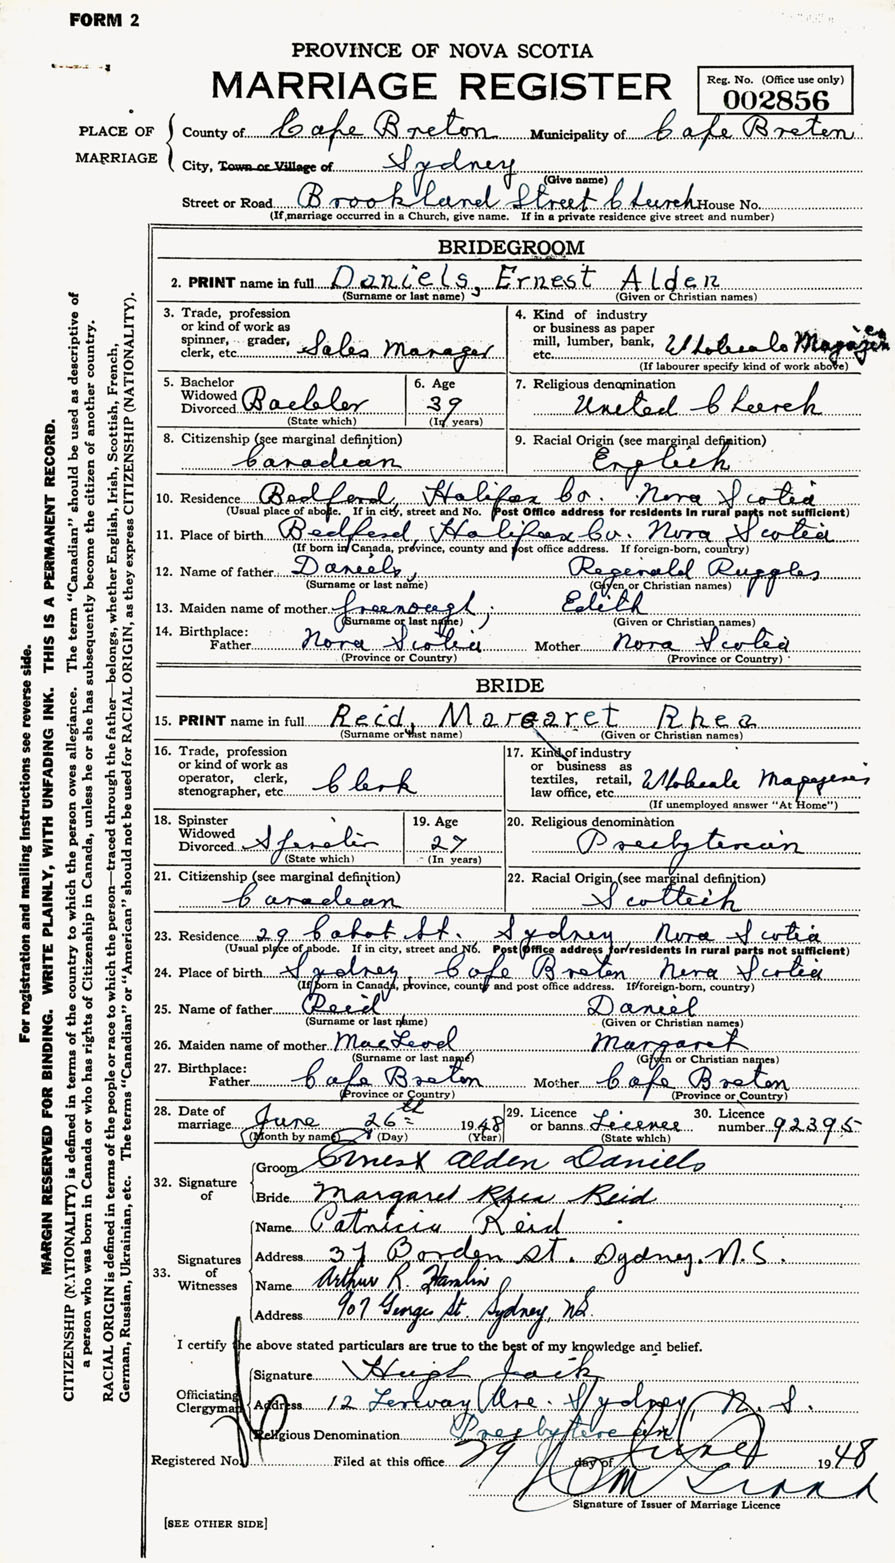 FORM 2
PROVINCE OF NOVA SCOTIA
MARRIAGE REGISTER
Reg. No. (Office use only)
002856
PLACE OF MARRIAGE
County of Cape Breton Municipality of Cape Breton
City, Town or Village of Sydney
(Give name)
Street or Road Brookland Street Church House No.
(If marriage occurred in a Church, give name. If in a private residence give street and number)
BRIDEGROOM
2. PRINT name in full Daniels, Ernest Alden
(Surname or last name) (Given or Christian names)
3. Trade, profession or kind of work as spinner, grader, clerk, etc. Sales Manager
4. Kind of industry or business as paper mill, lumber, bank, etc. Wholesale Magazines
(If labourer specify kind of work above)
5. Bachelor Widowed Divorced Bachelor
(State which)
6. Age 39
(In years)
7. Religious denomination United Church
8. Citizenship (see marginal definition) Canadian
9. Racial Origin (see marginal definition) English
10. Residence Bedford, Halifax Co. Nova Scotia
(Usual place of abode. If in city, street and No. Post Office address for residents in rural parts not sufficient)
11. Place of birth Bedford, Halifax Co. Nova Scotia
(If born in Canada, province, county and post office address. If foreign-born, country)
12. Name of father Daniels, Reginald Ruggles
(Surname or last name) (Given or Christian names)
13. Maiden name of mother Greenough, Edith
(Surname or last name) (Given or Christian names)
14. Birthplace: Father Nova Scotia Mother Nova Scotia
(Province or Country) (Province or Country)
BRIDE
15. PRINT name in full Reid, Margaret Rhea
(Surname or last name) (Given or Christian names)
16. Trade, profession or kind of work as operator, clerk, stenographer, etc. Clerk
17. Kind of industry or business as textiles, retail, law office, etc. Wholesale Magazines
(If unemployed answer "At Home")
18. Spinster Widowed Divorced Spinster
(State which)
19. Age 27
(In years)
20. Religious denomination Presbyterian
21. Citizenship (see marginal definition) Canadian
22. Racial Origin (see marginal definition) Scottish
23. Residence 29 Cabot St. Sydney Nova Scotia
(Usual place of abode. If in city, street and No. Post Office address for residents in rural parts not sufficient)
24. Place of birth Sydney Cape Breton Nova Scotia
(If born in Canada, province, county and post office address. If foreign-born, country)
25. Name of father Reid Daniel
(Surname or last name) (Given or Christian names)
26. Maiden name of mother MacLeod Margaret
(Surname or last name) (Given or Christian names)
27. Birthplace: Father Cape Breton Mother Cape Breton
(Province or Country) (Province or Country)
28. Date of marriage June 26th 1948
(Month by name) (Day) (Year)
29. Licence or banns License
(State which)
30. Licence number 92395
32. Signature of
Groom Ernest Alden Daniels
Bride Margaret Rhea Reid
33. Signatures of Witnesses
Name Patricia Reid
Address 37 Borden St. Sydney. N.S.
Name Arthur R. Hamlin
Address 907 George St. Sydney, NS.
I certify the above stated particulars are true to the best of my knowledge and belief.
Officiating Clergyman
Signature Hugh Jack
Address 12 Ave. Sydney, N. S.
Religious Denomination Presbyterian
Registered No. Filed at this office 29 day of June 1948
Signature of Issuer of Marriage Licence
[SEE OTHER SIDE]
For registration and mailing instructions see reverse side.
MARGIN RESERVED FOR BINDING. WRITE PLAINLY, WITH UNFADING INK. THIS IS A PERMANENT RECORD.
CITIZENSHIP (NATIONALITY) is defined in terms of the country to which the person owes allegiance. The term "Canadian" should be used as descriptive of
a person who was born in Canada or who has rights of Citizenship in Canada, unless he or she has subsequently become the citizen of another country.
RACIAL ORIGIN is defined in terms of the people or race to which the person—traced through the father—belongs, whether English, Irish, Scottish, French,
German, Russian, Ukrainian, etc. The terms "Canadian" or "American" should not be used for RACIAL ORIGIN, as they express CITIZENSHIP (NATIONALITY).